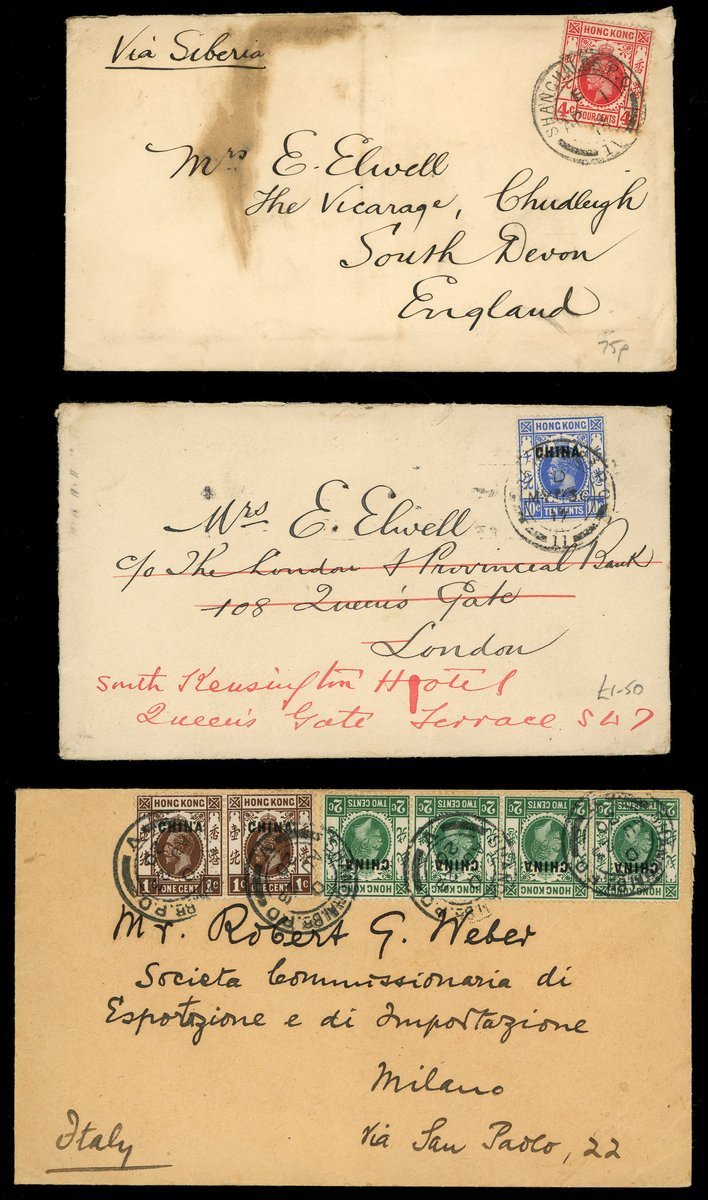 Via Siberia
HONG KONG
4c FOUR CENTS 4c
SHANGHAI B.P.O.
Mrs E. Elwell
The Vicarage, Chudleigh
South Devon
England
75p
HONG KONG
CHINA
10c TEN CENTS 10c
Mrs E. Elwell
c/o The London & Provincial Bank
108 Queen's Gate
London
South Kensington Hotel
Queen's Gate Terrace SW7
£1-50
HONG KONG HONG KONG
CHINA CHINA
1c ONE CENT 1c 1c ONE CENT 1c
2c TWO CENTS 2c 2c TWO CENTS 2c 2c TWO CENTS 2c 2c TWO CENTS 2c
CHINA CHINA CHINA CHINA
HONG KONG HONG KONG HONG KONG HONG KONG
Mr. Robert G. Weber
Societa Commissionaria di
Esportazione e di Importazione
Milano
Italy
Via San Paolo, 22